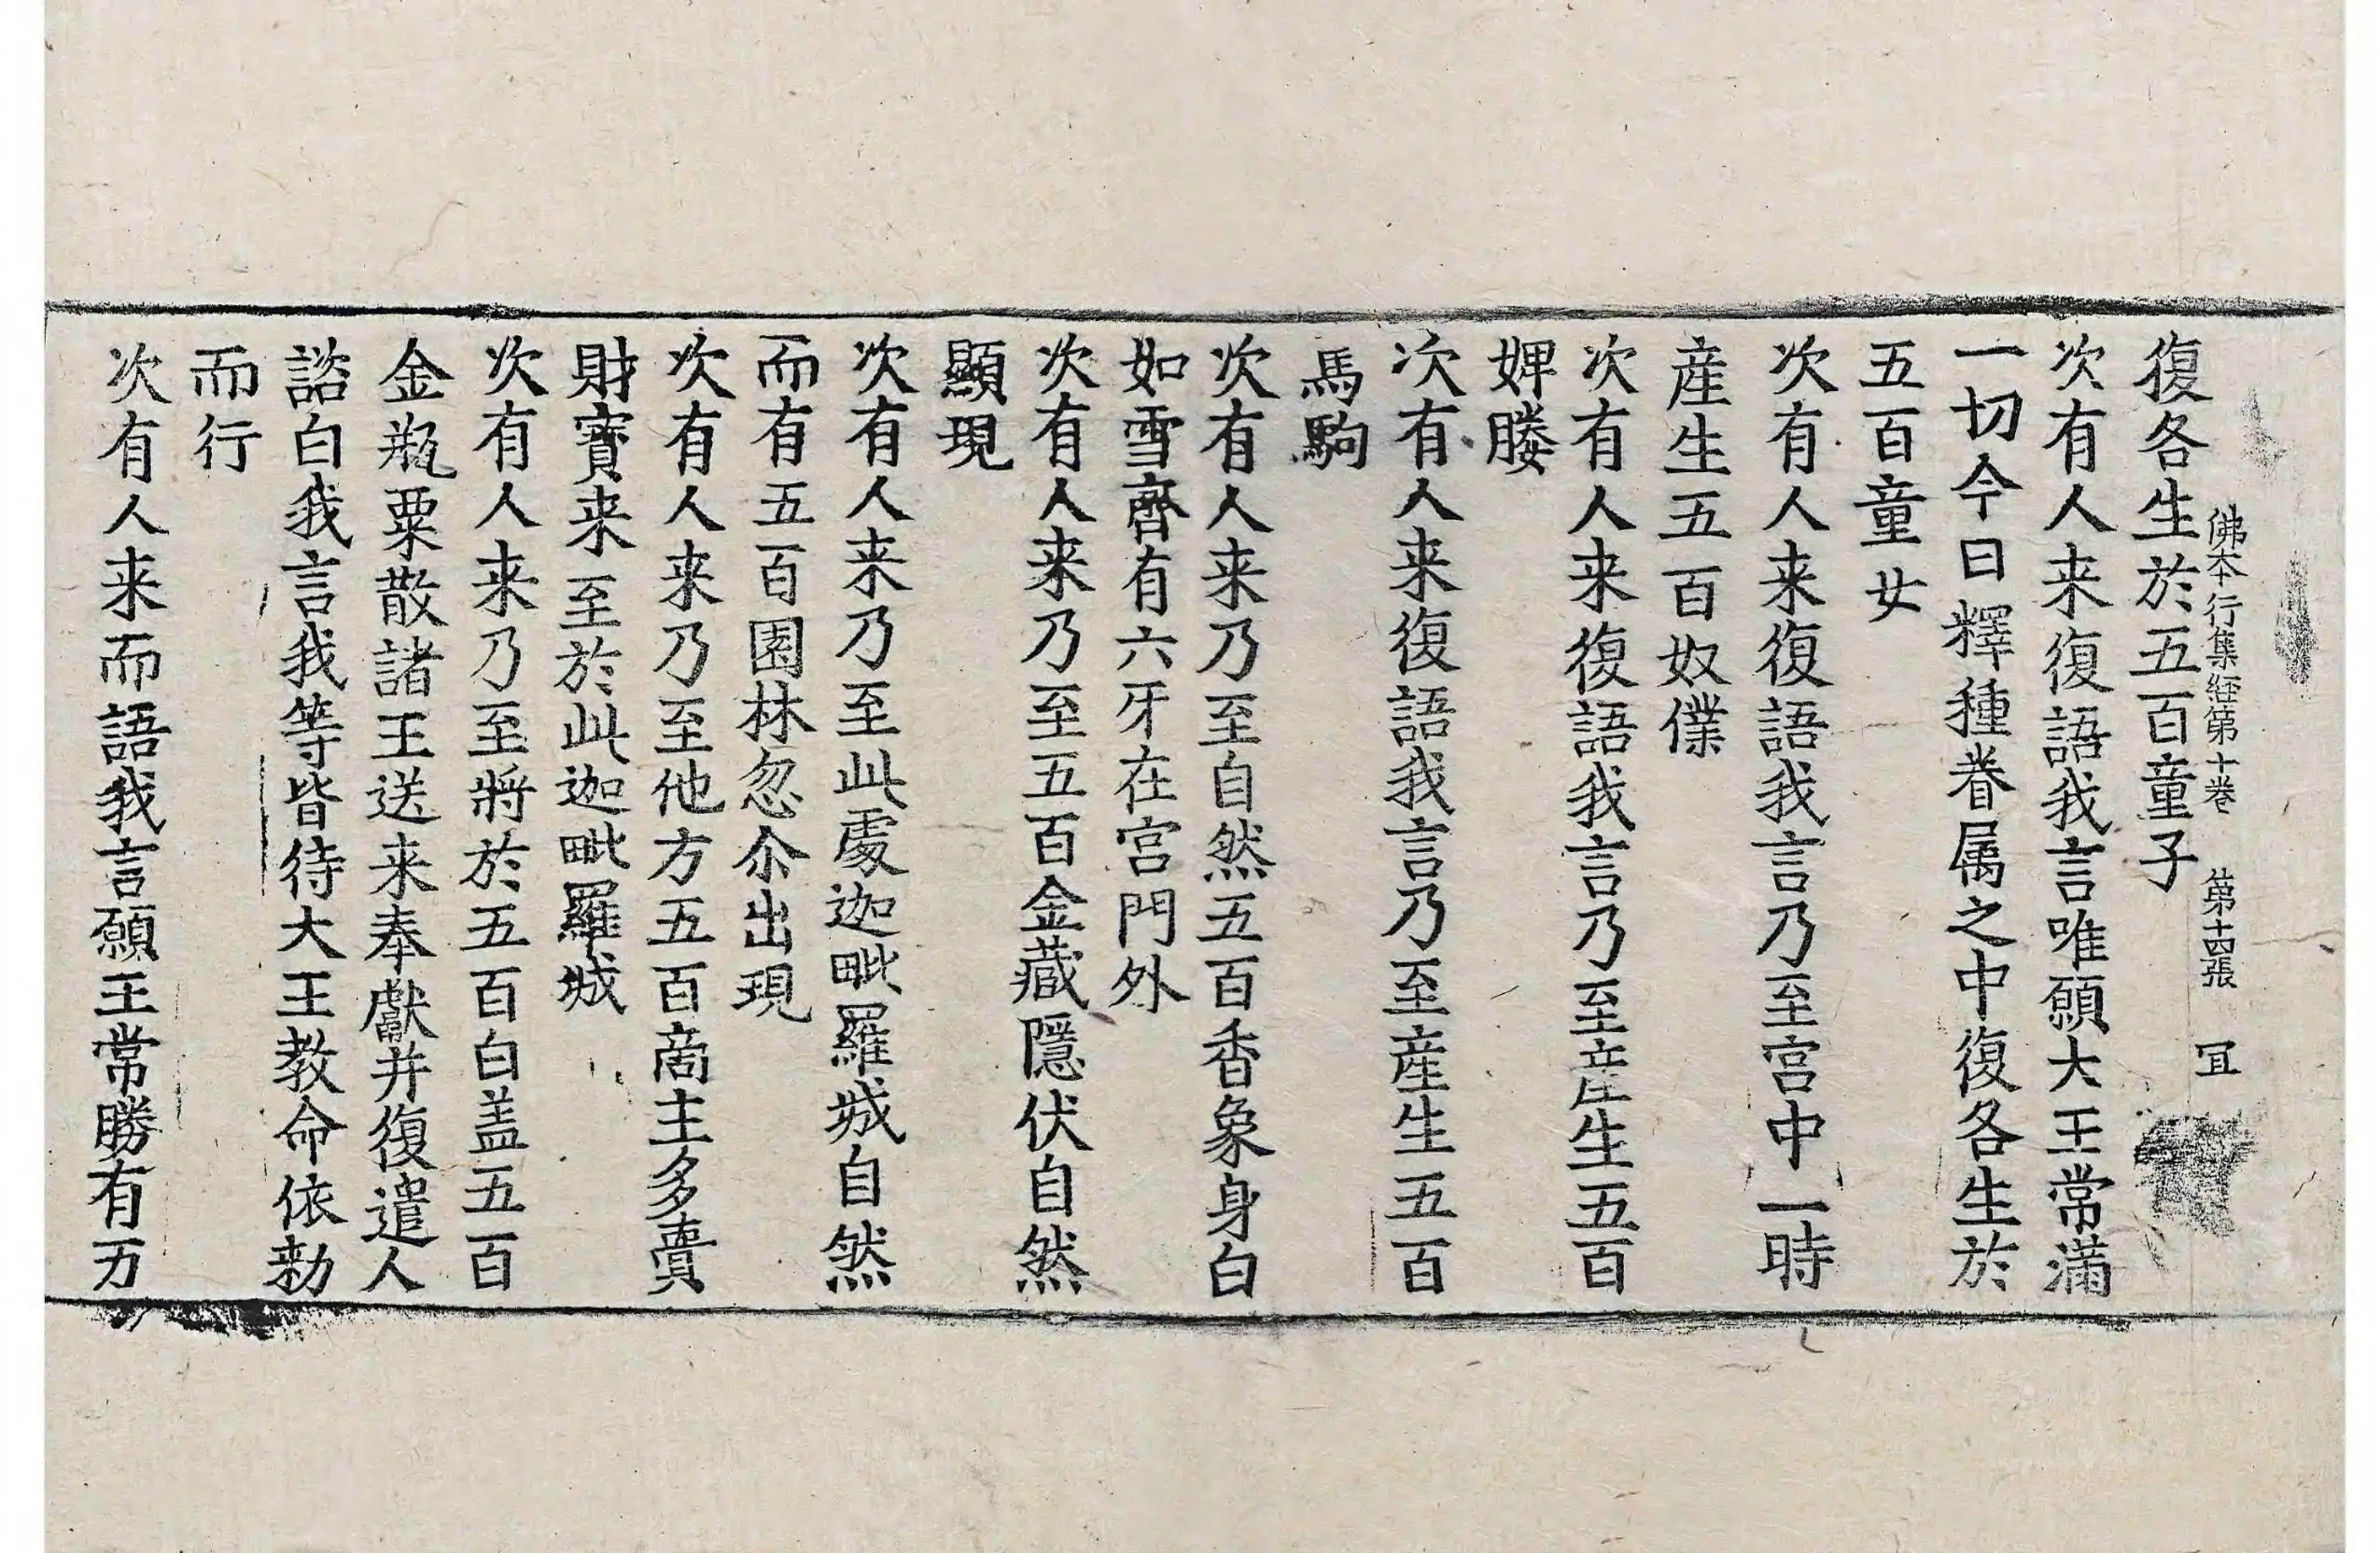 佛本行集経第十巻　第十四張　冝
復各生於五百童子
次有人来復語我言唯願大王常滿
一切今日釋種眷属之中復各生於
五百童女
次有人来復語我言乃至宫中一時
産生五百奴僕
次有人来復語我言乃至産生五百
婢媵
次有人来復語我言乃至産生五百
馬駒
次有人来乃至自然五百香象身白
如雪齊有六牙在宫門外
次有人来乃至五百金藏隱伏自然
顯現
次有人来乃至此處迦毗羅城自然
而有五百園林忽尒出現
次有人来乃至他方五百啇主多賷
財寶来至於此迦毗羅城
次有人来乃至將於五百白盖五百
金瓶粟散諸王送来奉獻并復遣人
諮白我言我等皆待大王教命依勑
而行
次有人来而語我言願王常勝有万